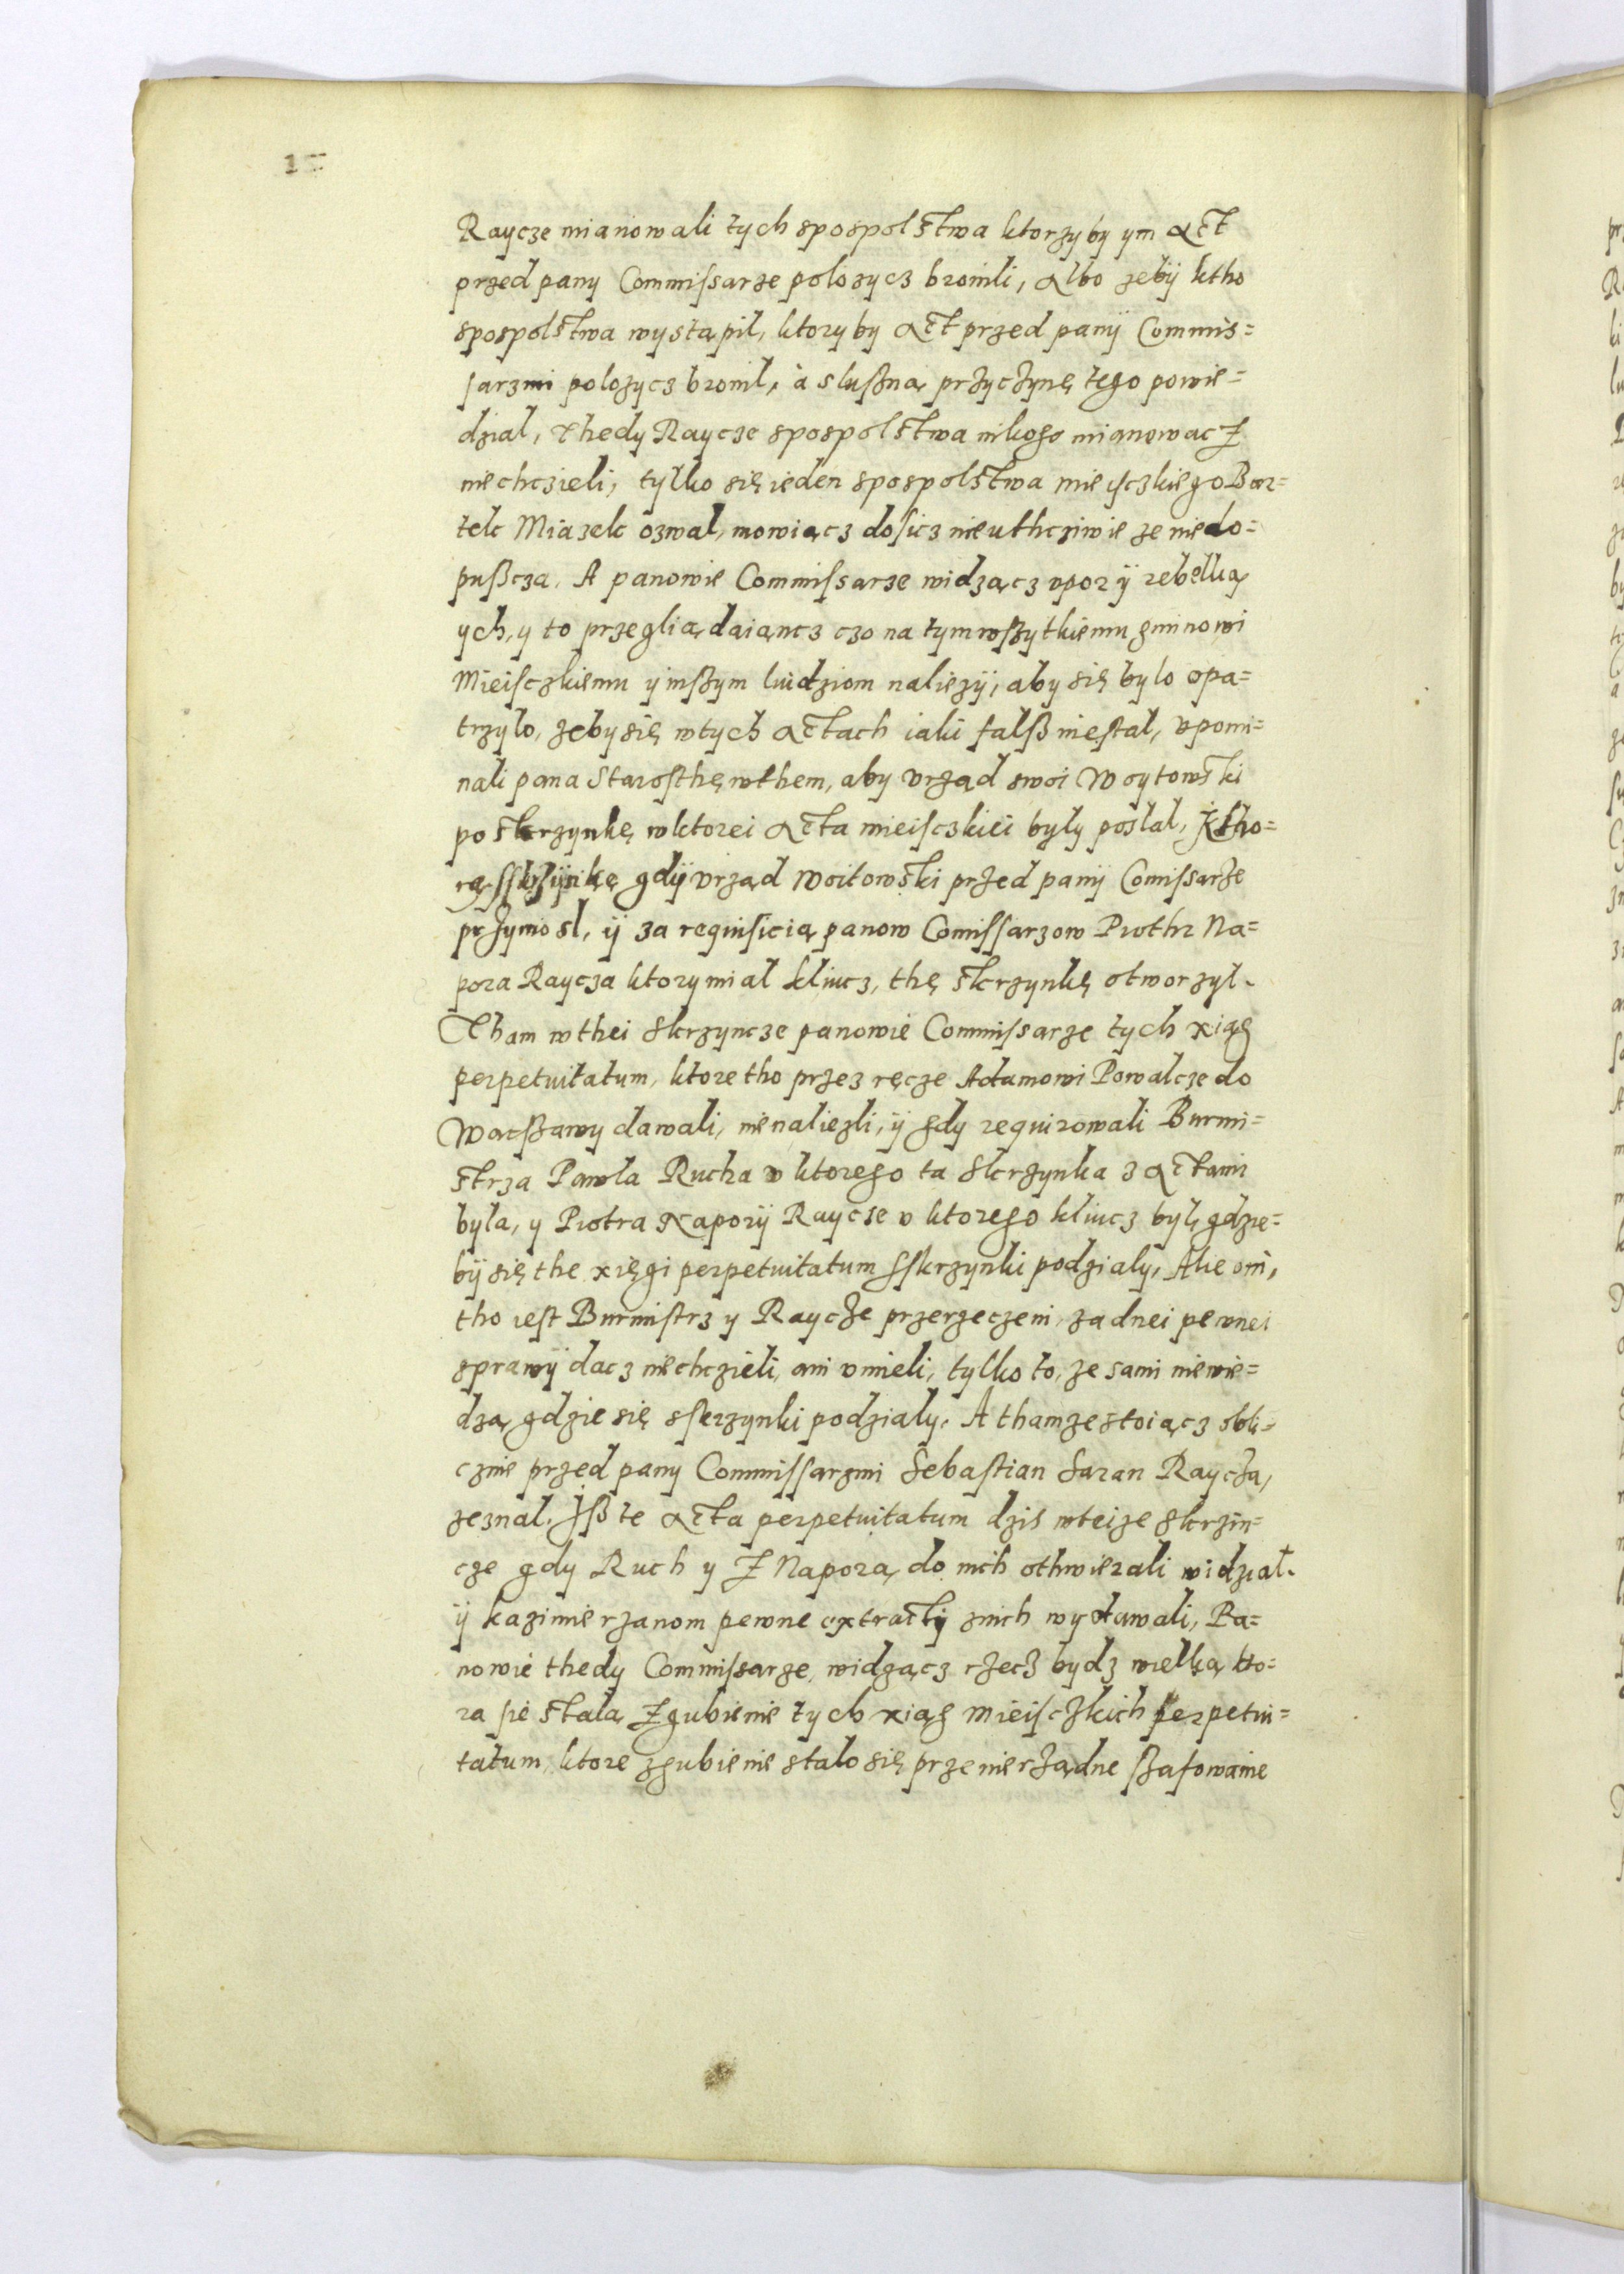 Raycze mianowali tych spospolstwa ktorzyby ym Act
przed pany Commissarze polozycz bronili, Albo zebÿ ktho
spospolstwa wystąpil, ktoryby Act przed panÿ Commis=
sarzmi polozycz bronil, à sluszną przyczynę tego powie=
dzial, Thedy Raycze spospolstwa nikogo mianowacz
niechczieli, tylko się ieden spospolstwa mieisczkiego Bar=
tek Miazek ozwal, mowiącz dosicz nieuthcziwie ze niedo=
pußcza. A panowie Commissarze widzącz upor ÿ rebellią
ych, y to przeglią daiancz czo na tym wszytkiemu gminowi
Mieisczkiemu y inszym luidziom naliezÿ, aby się bylo opa=
trzylo, zeby się wtych Actach iaki falß niestal, upomi=
nali pana Starosthę wthem, aby urząd swoi Woytowski
po skrzynkę wktorei Acta mieisczkiei byly poslal, Ktho=
rą sskrzÿnkę gdÿ urząd Woitowski przed panÿ Comissarze
przyniosl, ÿ za reqiusicią panow Comissarzow Piothr Na=
pora Raycza ktory mial kliucz, thę skrzynkę otworzyl.
Tham wthei Skrzyncze panowie Commissarze tych xiąg
perpetuitatum, ktore tho przez ręcze Adamowi Powalcze do
Warszawy dawali, nienaliezli, ÿ gdy requirowali Burmi=
strza Pawla Rucha u ktorego ta Skrzynka z Actami
byla, y Piotra Naporÿ Raycze u ktorego kliucz byl, gdzie=
bÿ się the xięgi perpetuitatum sskrzynki podzialy, Alie oni,
tho iest Burmistrz y Raycze przerzeczeni, zadnei pewnei
sprawÿ dacz niechczieli, ani umieli, tylko to, ze sami niewie=
dzą gdzie się sskrzynki podzialy. A thamze stoiącz obli=
cznie przed pany Commissarzmi Sebastian Saran Raycza,
zeznal. Iß te Acta perpetuitatum dzis wteize Skrzin=
cze gdy Ruch y z Naporą do nich othwierali widzial.
ÿ kazimierzanom pewne extractÿ znich wydawali, Pa=
nowie thedy Commissarze widzącz rzecz bydz wielką kto=
ra sie stala zgubienie tych xiąg Mieisczkich perpetui=
tatum, ktore zgubienie stalo się prze nierządne szafowanie